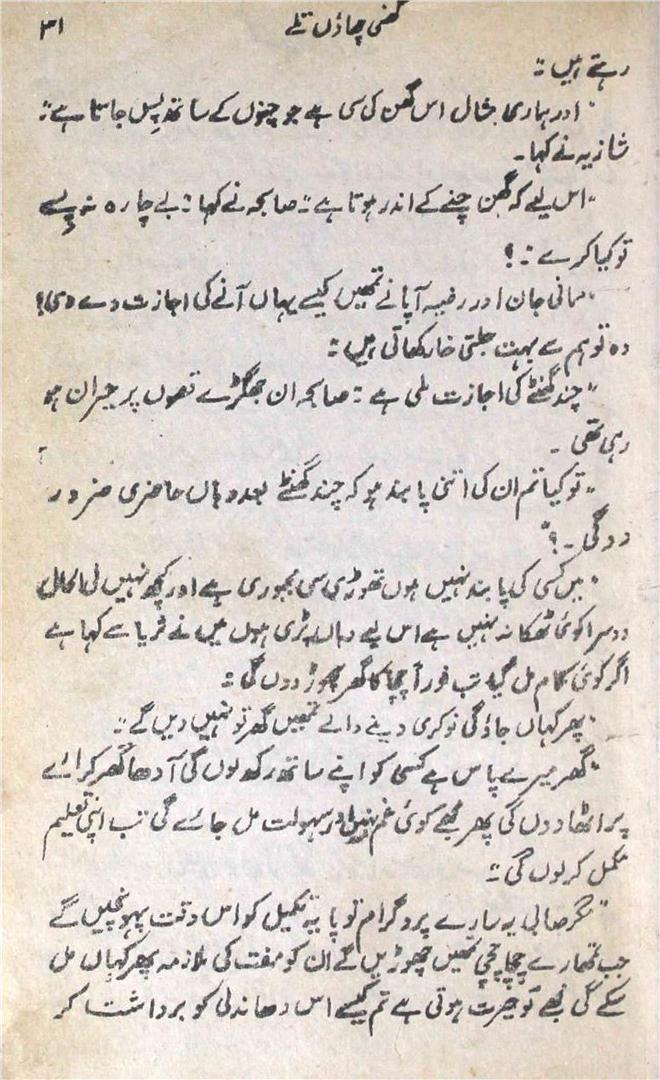 گھنی چھاؤں تلے
۳۱
رہتے ہیں :"
"اور ہماری مثال اس گھن کی سی ہے جو چنوں کے ساتھ پس جاتا ہے :"
شازیہ نے کہا۔
"اس لیے کہ گھن چنے کے اندر ہوتا ہے :" صالحہ نے کہا :" بے چارہ نہ پسے
تو کیا کرے :" ؟
"مانی جان اور رفیعہ آپا نے تمھیں کیسے یہاں آنے کی اجازت دے دی؟
وہ تو ہم سے بہت جلتی خار کھاتی ہیں :"
"چند گھنٹے کی اجازت ملی ہے :" صالحہ ان جھگڑے قصوں پر حیران ہو
رہی تھی ۔
"تو کیا تم ان کی اتنی پابند ہو کہ چند گھنٹے بعد وہاں حاضری ضرور
دو گی ۔ ؟"
"میں کسی کی پابند نہیں ہوں تھوڑی سی مجبوری ہے اور کچھ نہیں فی الحال
دوسرا کوئی ٹھکانہ نہیں ہے اس لیے وہاں پڑی ہوں میں نے ثریا سے کہا ہے
اگر کوئی کام مل گیا تب فوراً چچا کا گھر چھوڑ دوں گی :"
"پھر کہاں جاؤ گی نوکری دینے والے تمھیں گھر تو نہیں دیں گے :"
"گھر میرے پاس ہے کسی کو اپنے ساتھ رکھ لوں گی آدھا گھر کرائے
پر اٹھا دوں گی پھر مجھے کوئی غم نہیں اور سہولت مل جائے گی تب اپنی تعلیم
مکمل کر لوں گی :"
"مگر صالی یہ سارے پروگرام تو پایۂ تکمیل کو اس وقت پہونچیں گے
جب تمھارے چچا چچی تمھیں چھوڑیں گے ان کو مفت کی ملازمہ پھر کہاں مل
سکے گی مجھے تو حیرت ہوتی ہے تم کیسے اس دھاندلی کو برداشت کر